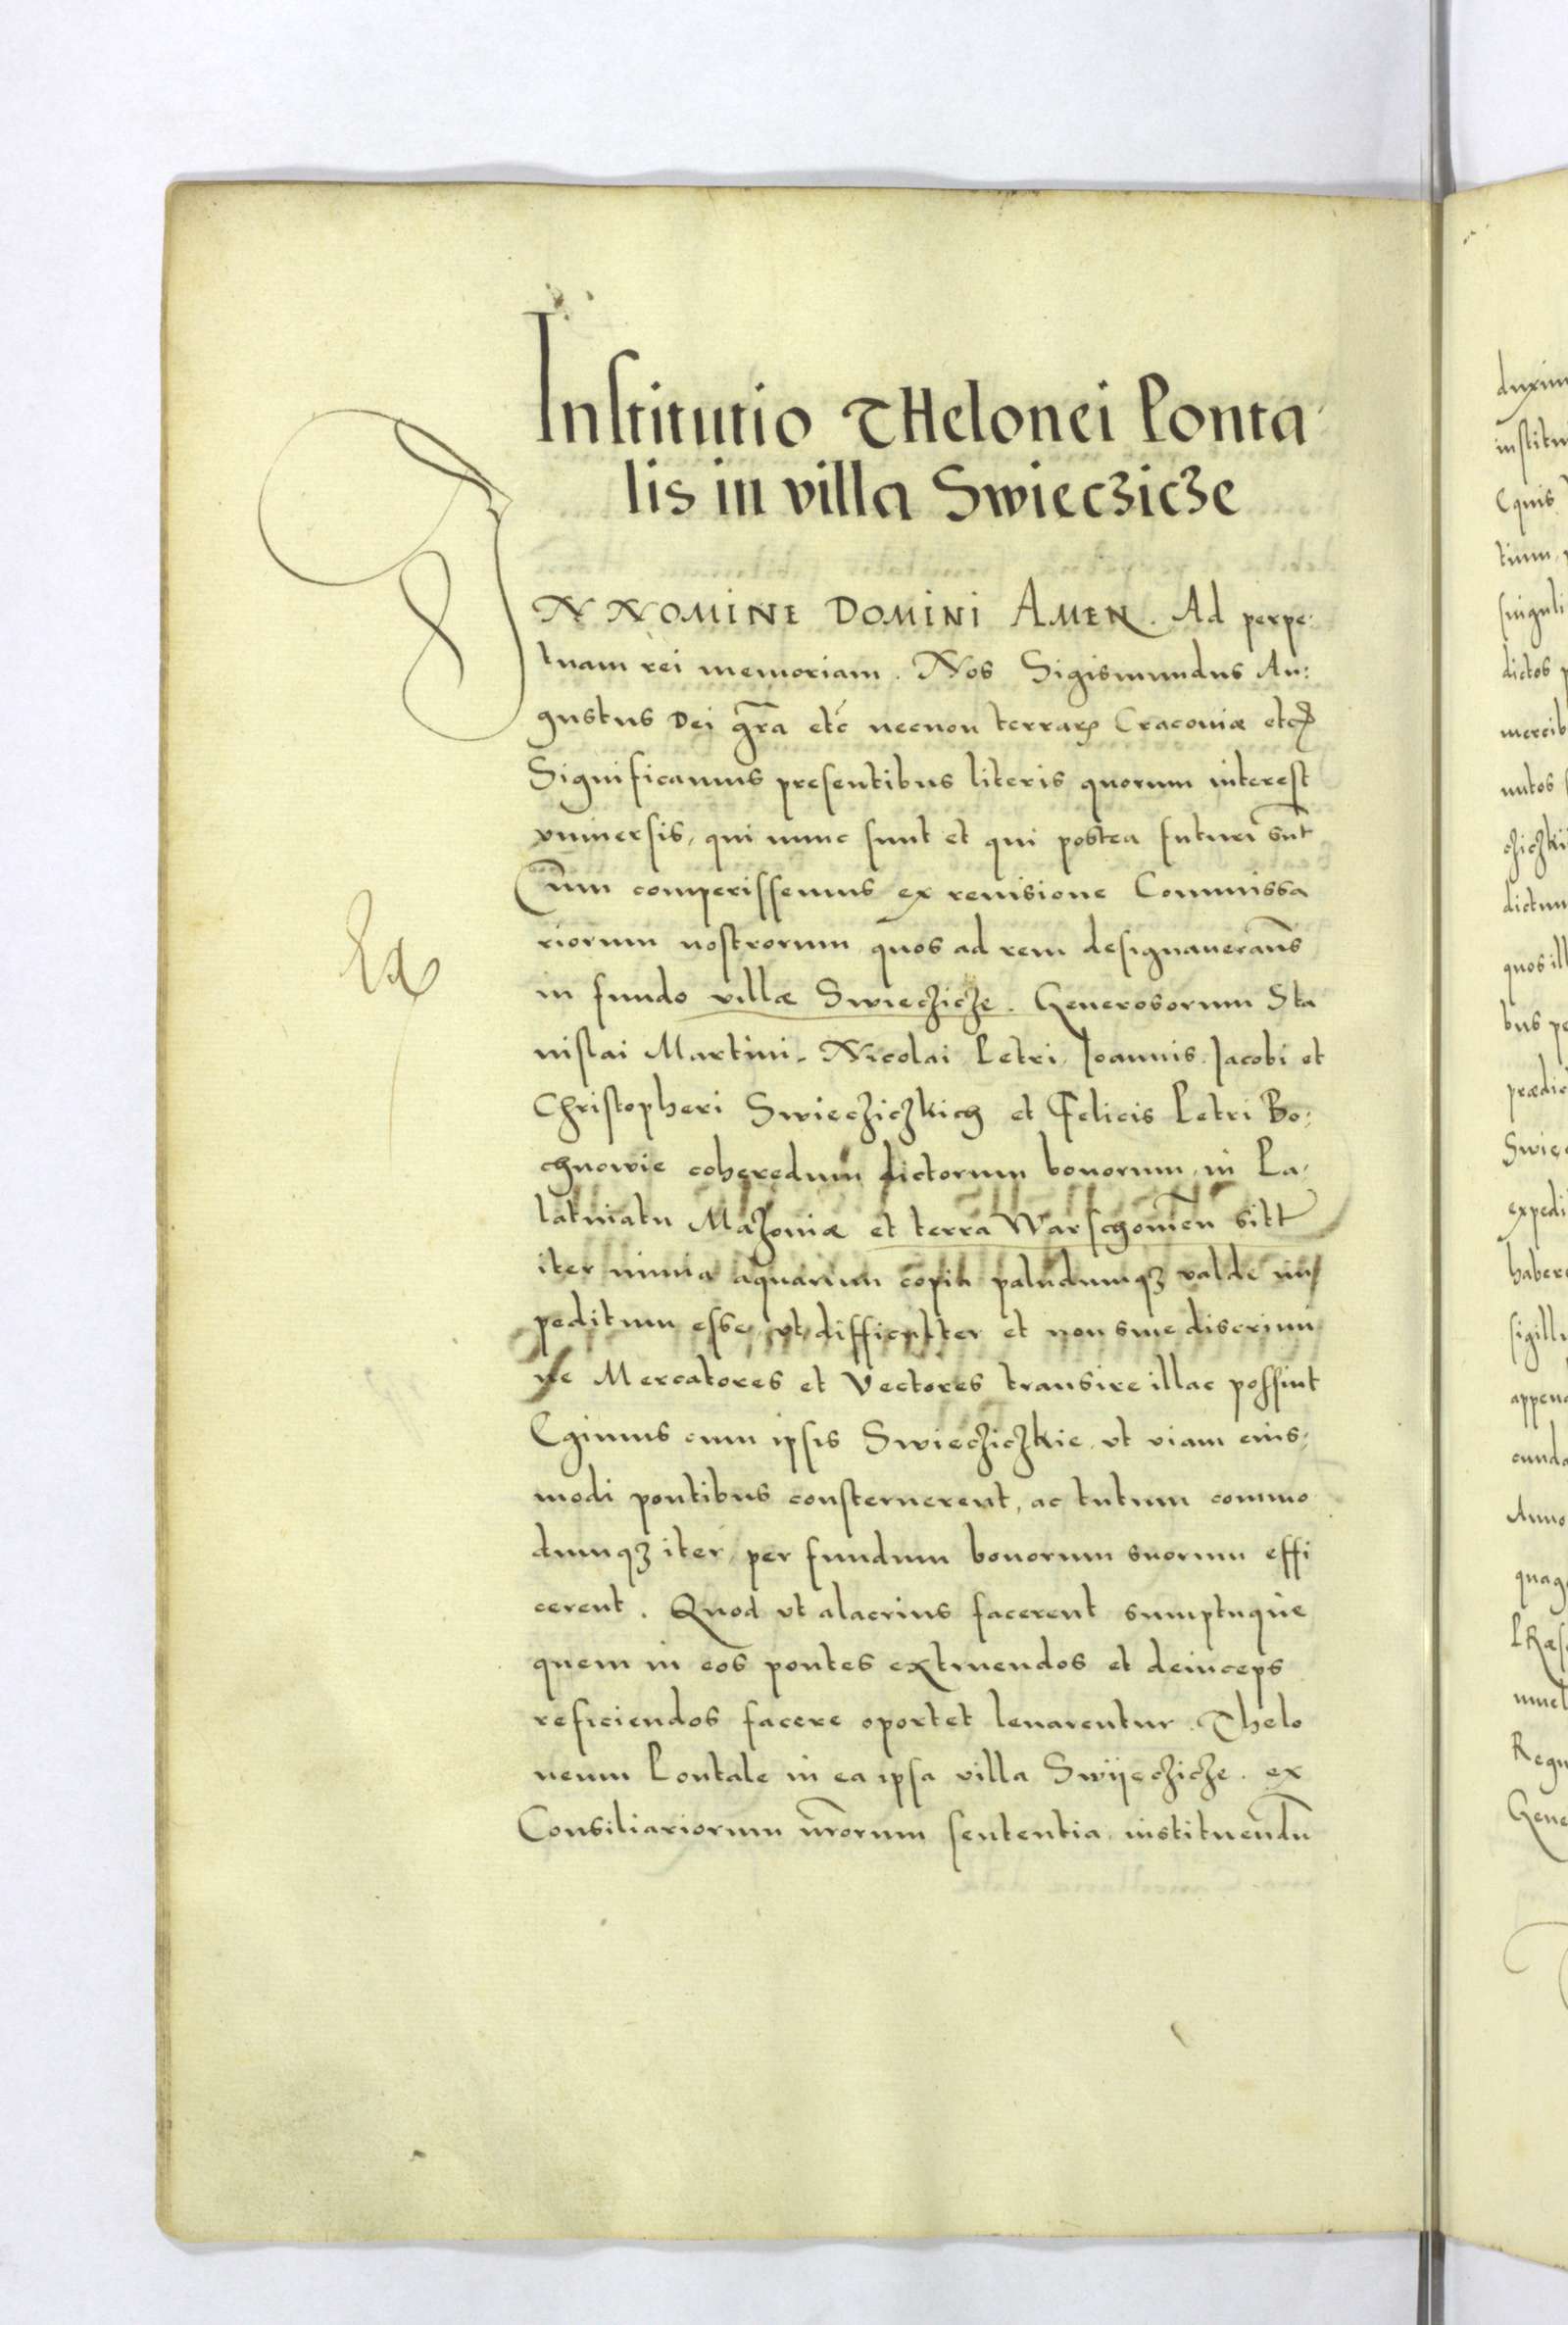 Institutio Thelonei Ponta
lis in villa Swieczicze
IN NOMINE DOMINI AMEN. Ad perpe:
tuam rei memoriam. Nos Sigismundus Au:
gustus Dei gra etc necnon terrarum Cracoviæ etc
Significamus presentibus literis quorum interest
vniuersis, qui nunc sunt et qui postea futuri sunt
Cum comperissemus ex reuisione Commissa
riorum nostrorum quos ad rem designaueramus
in fundo villæ Swieczicze. Generosorum Sta
nislai Martini, Nicolai Petri, Joannis, Jacobi et
Christopheri Swiecziczkich et Felicis Petri Bo:
chnowie coheredum dictorum bonorum, in Pa,
latinatu Mazouiæ et terra Warschouien sitt
iter nimia aquarum copia paludumqz valde im
peditum esse, vt difficulter et non sine discrimi
ne Mercatores et Vectores transire illac possint
Egimus cum ipsis Swiecziczkie, vt viam eius,
modi pontibus consternerent, ac tutum commo
dumqz iter, per fundum bonorum suorum effi
cerent. Quod vt alacrius facerent sumptuque
quem in eos pontes extruendos et deinceps
reficiendos facere oportet leuarentur. Thelo
neum Pontale in ea ipsa villa Swyeczicze. ex
Consiliariorum nrorum sententia, instituendu